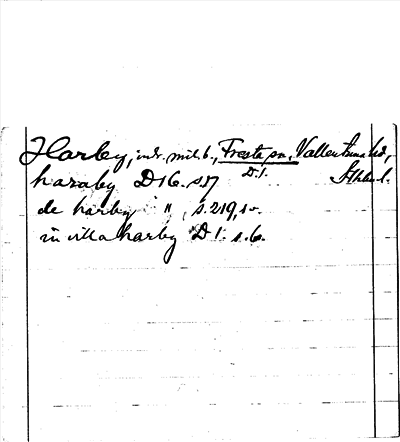 Harby, indr. mil. b., Fresta sn, Vallentuna hd,
D.1. Sthlm l.
haraby D16. s.87
de harby " , s. 219, 10.
in villa harby D 1. s. 6.